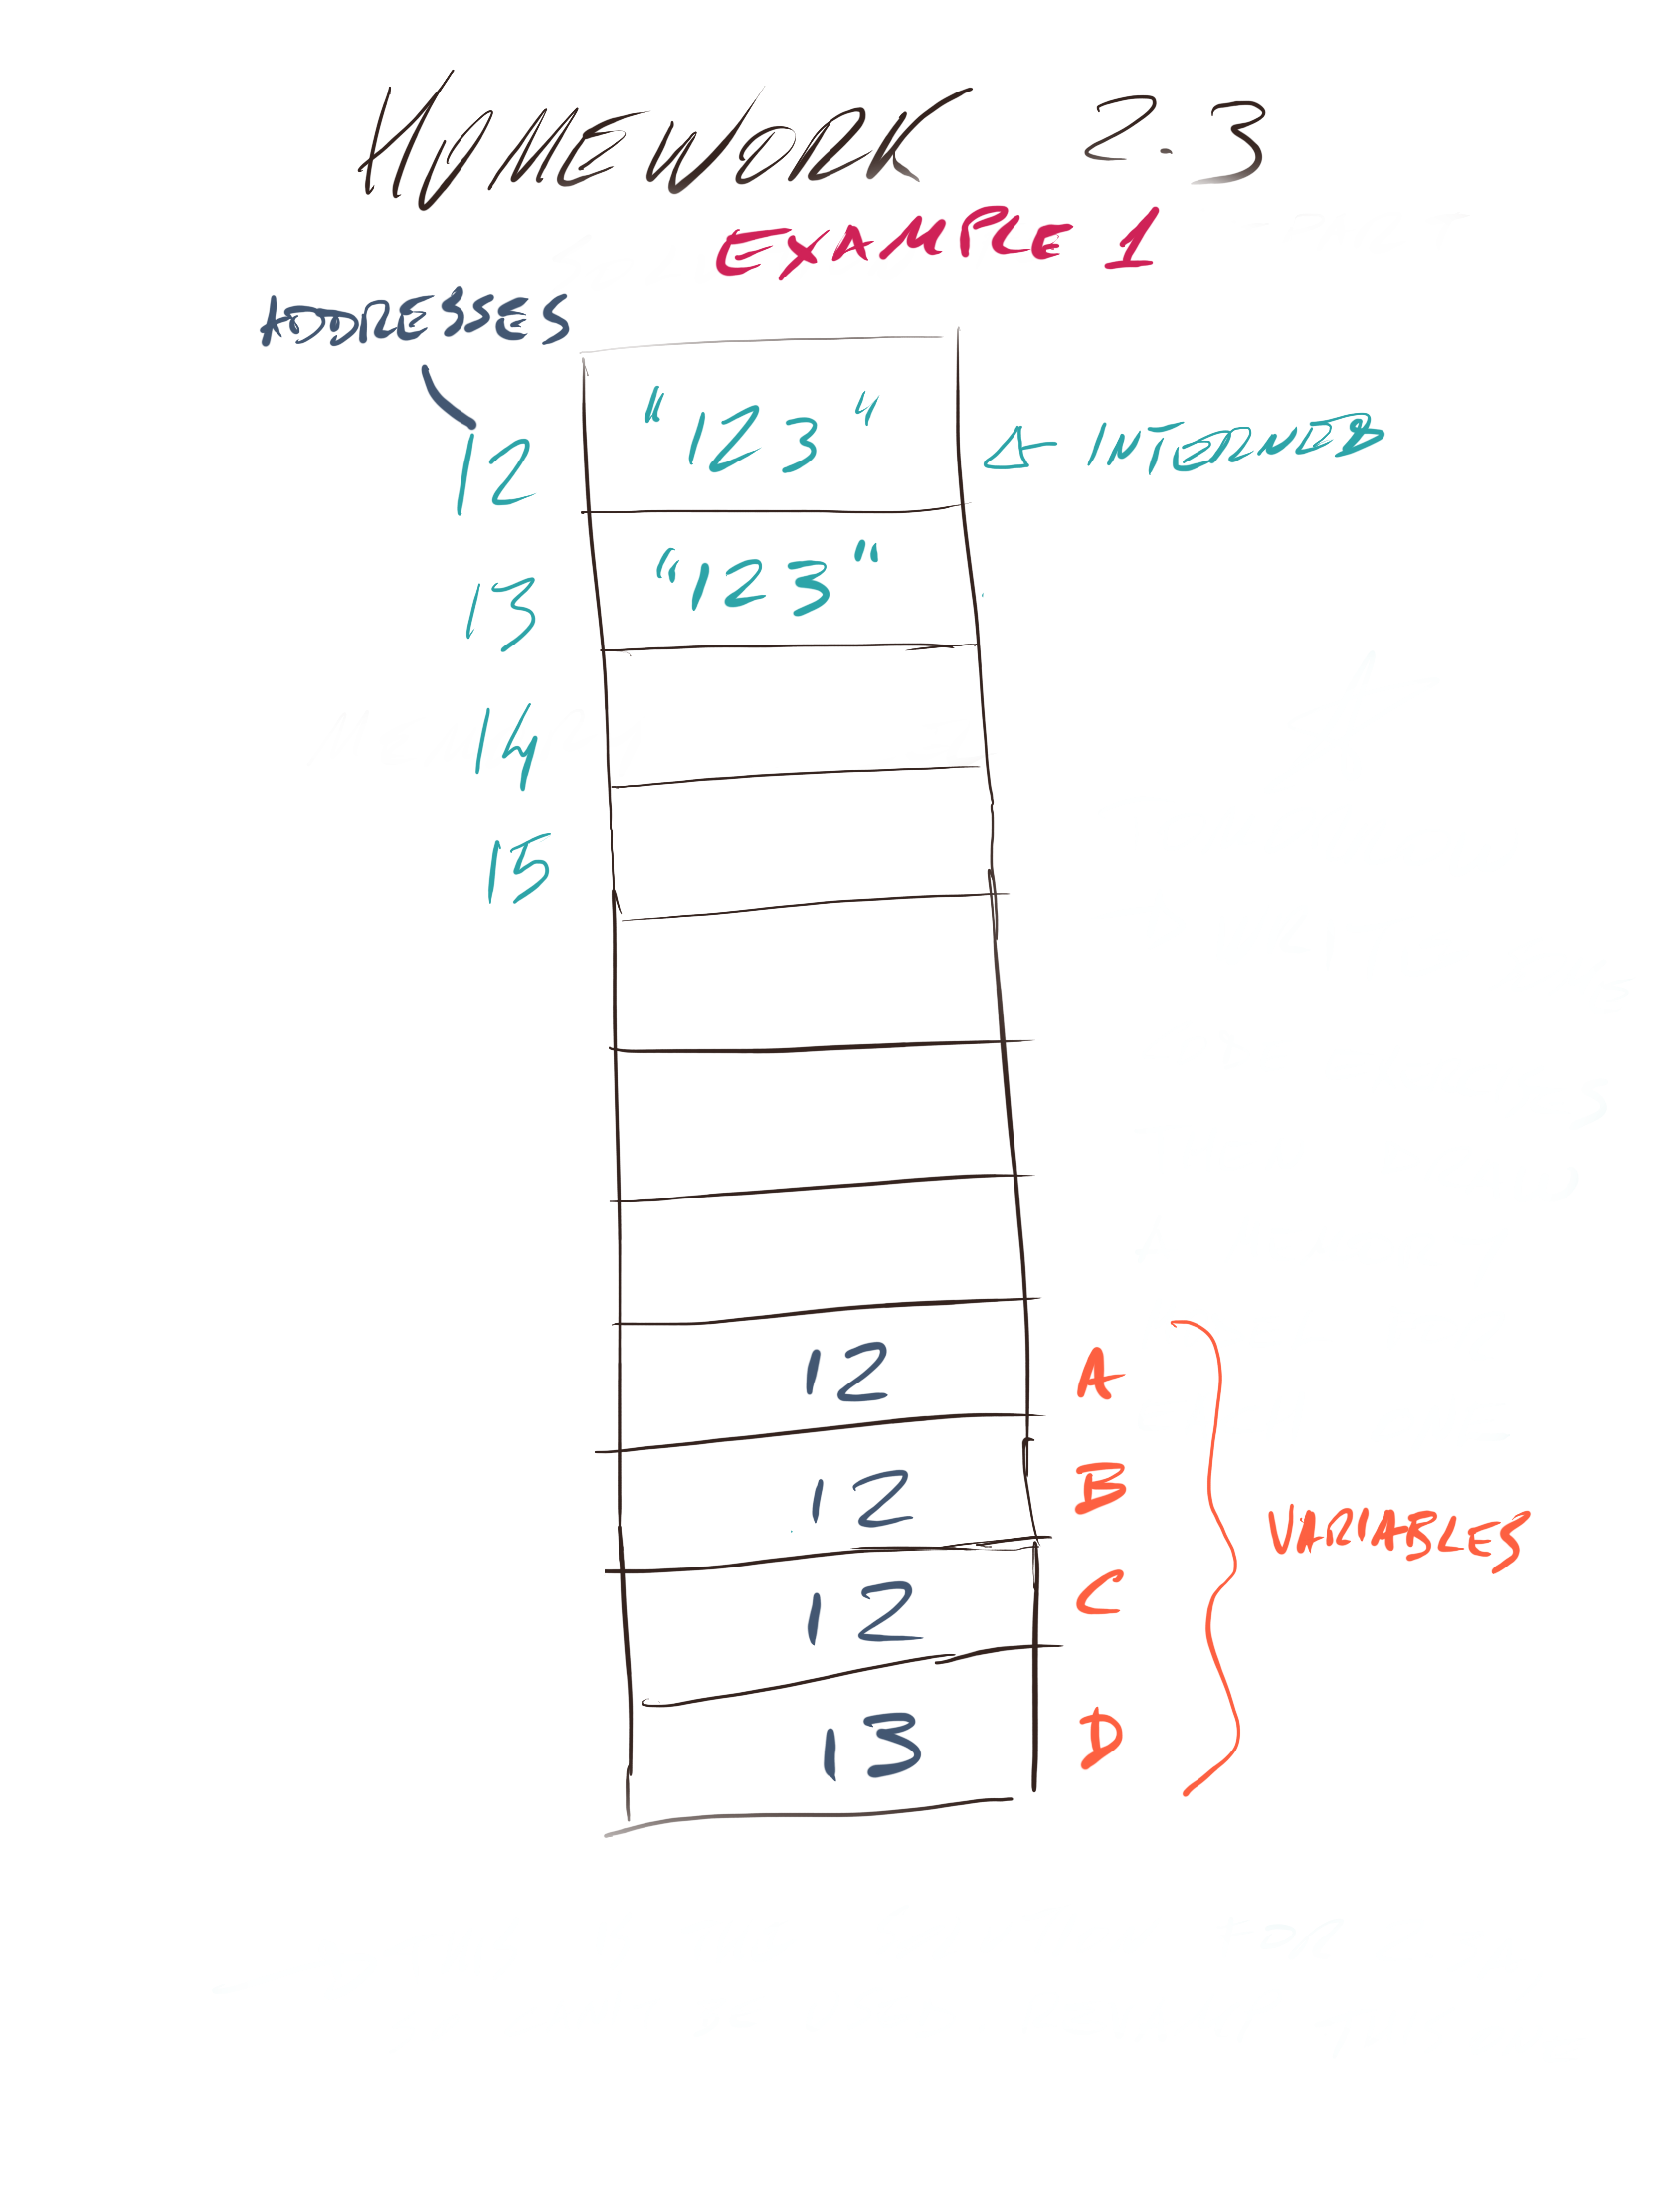 HOMEWORK 2.3
EXAMPLE 1
ADDRESSES
12 "123" ← INTERNED
13 "123"
14
15
12 A
12 B
VARIABLES
12 C
13 D